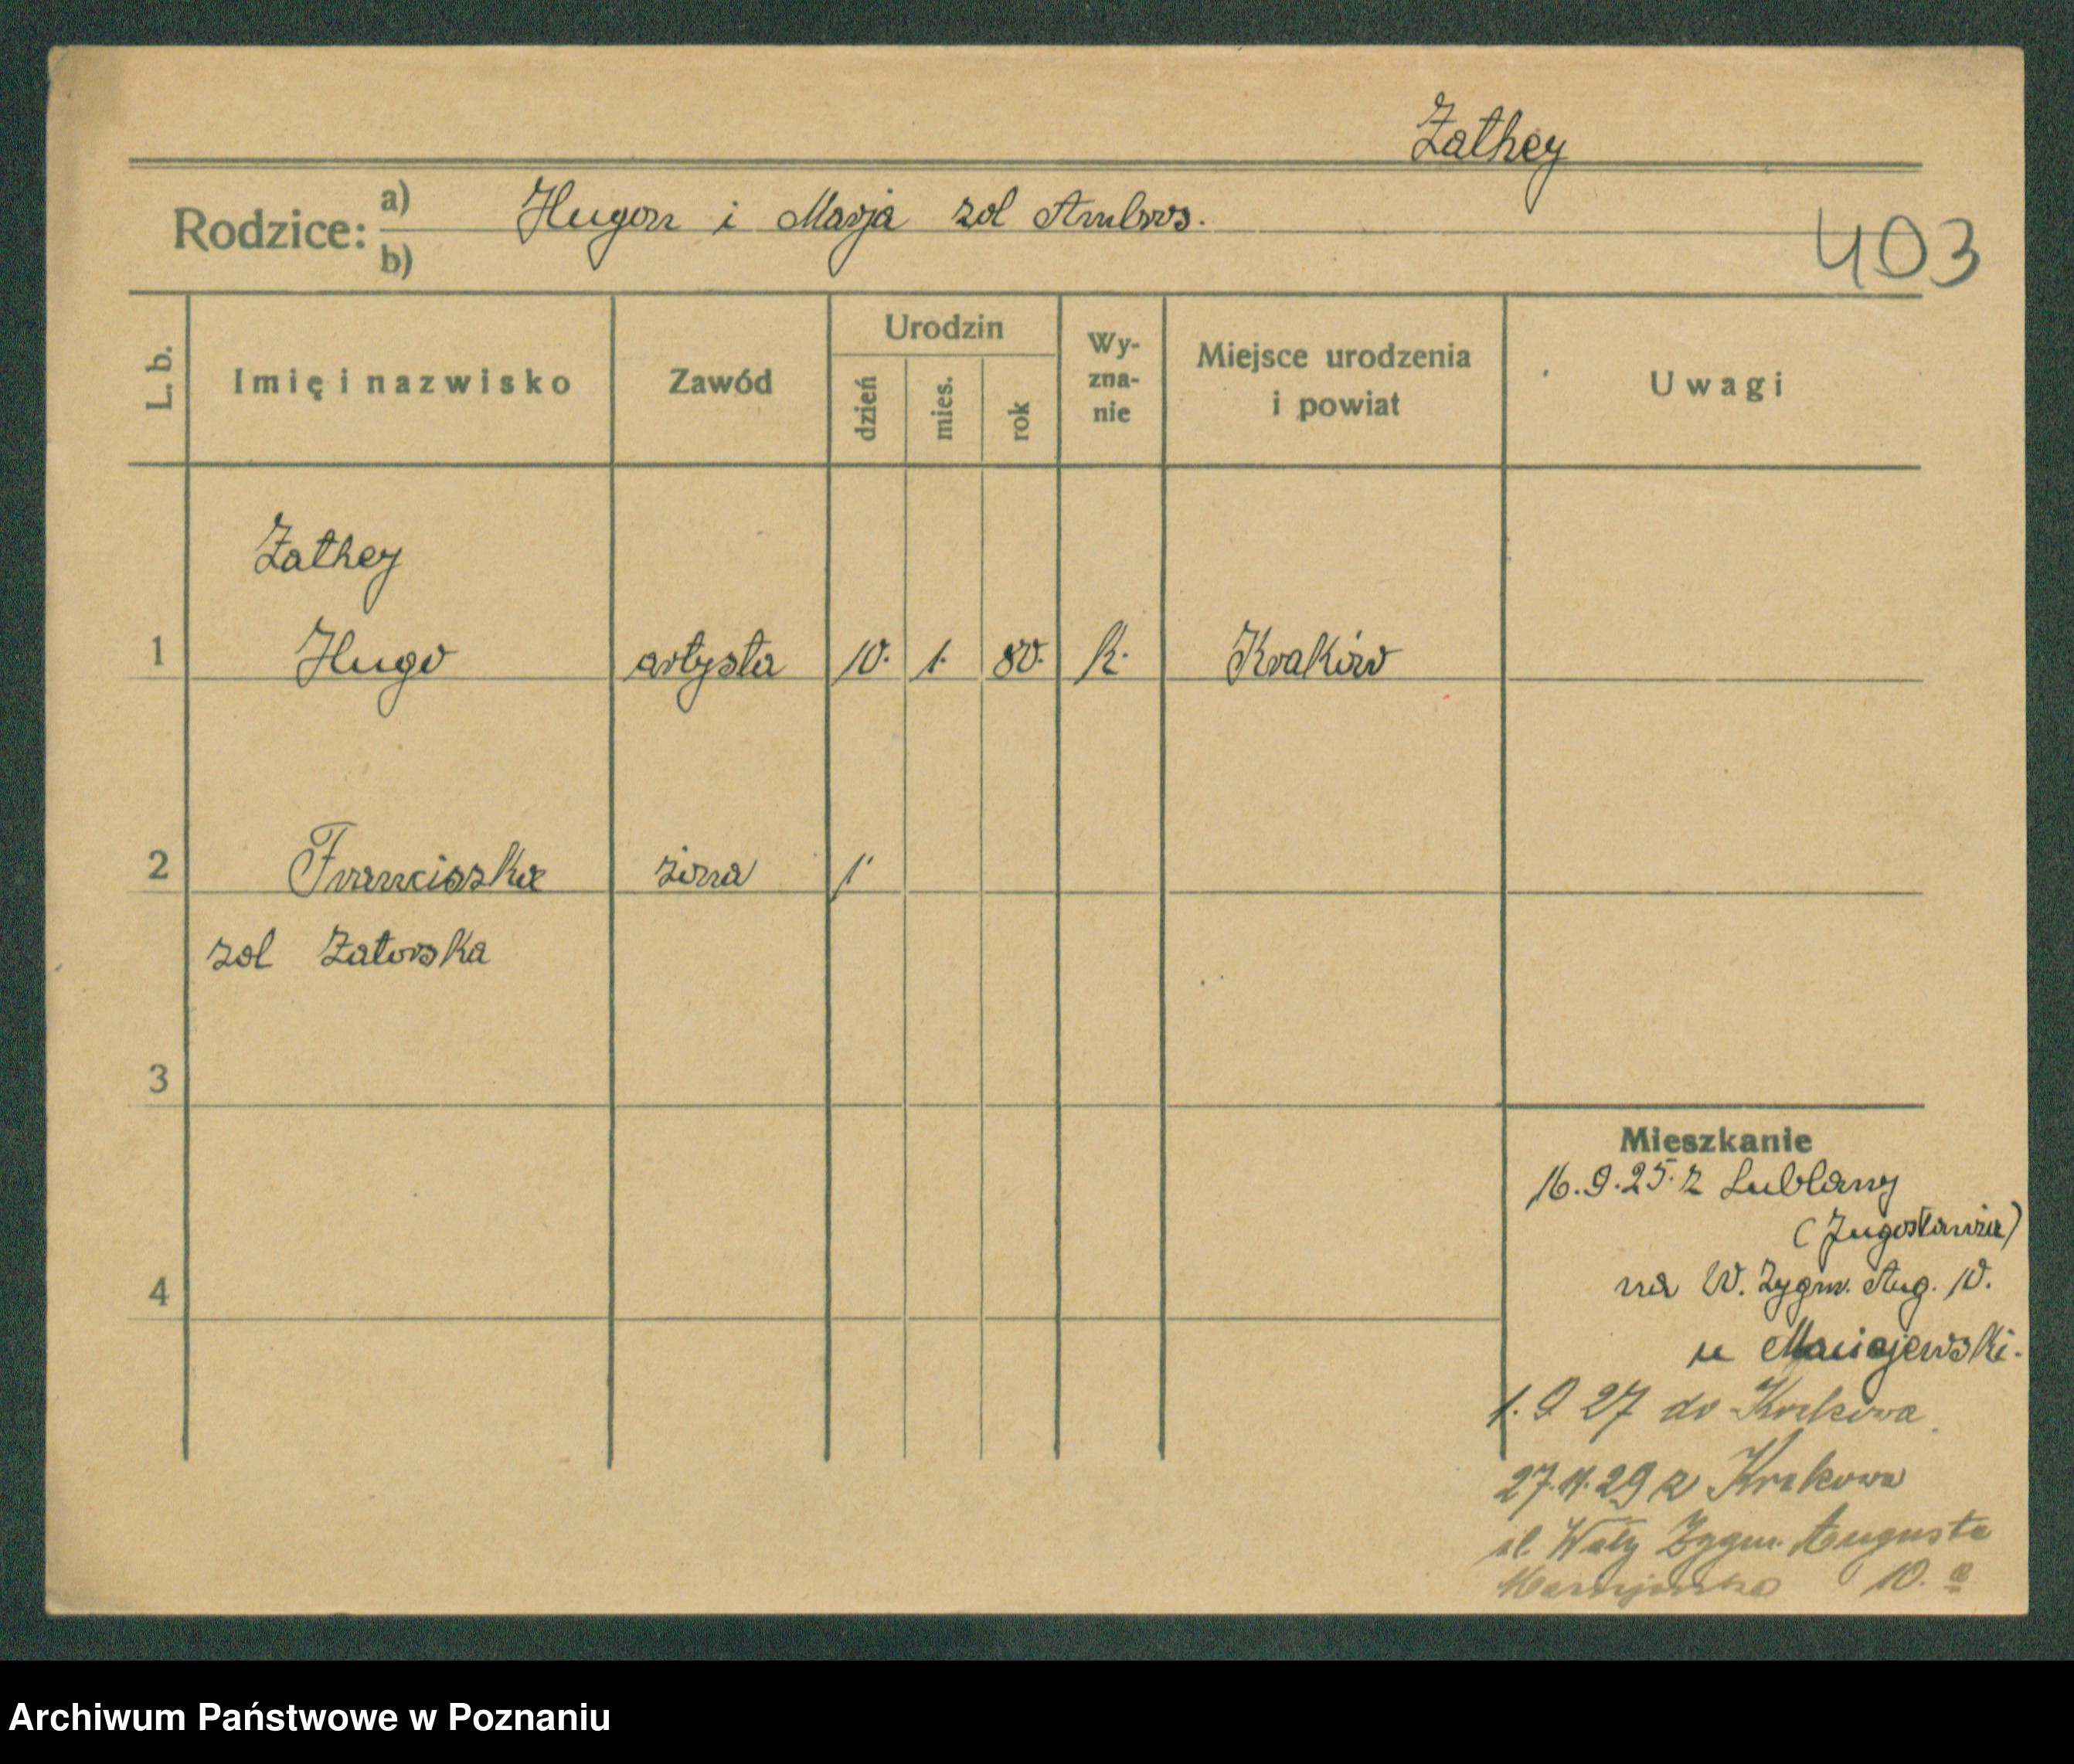 Zathey
Rodzice: a) Hugon i Marja zol Ambros.
b)
403
L. b. Imię i nazwisko Zawód Urodzin dzień mies. rok Wy-zna-nie Miejsce urodzenia i powiat Uwagi
Zathey
1 Hugo artysta 10. 1. 80. k. Kraków
2 Franciszka żona 1
zol Zatorska
3
4
Mieszkanie
16.9.25. z Lublany
(Jugosławia)
na W. Zygm. Aug. 10.
u Maciejewski.
1. 9 27 do Krakowa
27.11.29 z Krakowa
ul. Wały Zygm. Augusta
10.
Archiwum Państwowe w Poznaniu